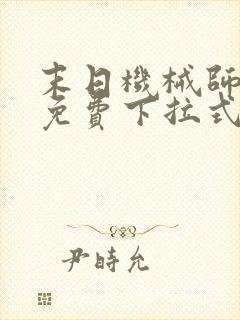 末日機械師
免費下拉式
尹時允